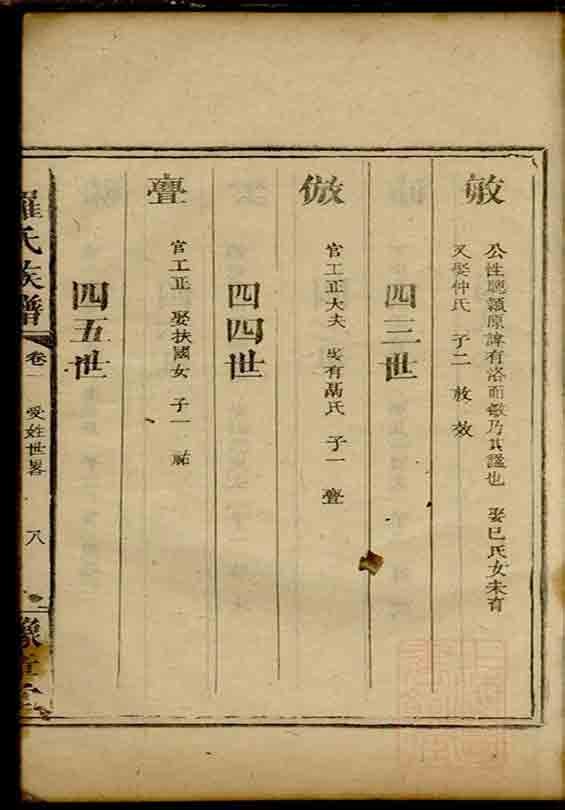 敏
公性聰穎原諱有洛而敏乃其諡也 娶巳氏女未育
又娶仲氏 子二 放 效
四三世
倣
官工正大夫 娶有鬲氏 子一 疊
四四世
疊
官工正 娶扶國女 子一 祐
四五世
羅氏族譜
卷一 受姓世畧
八
豫章堂